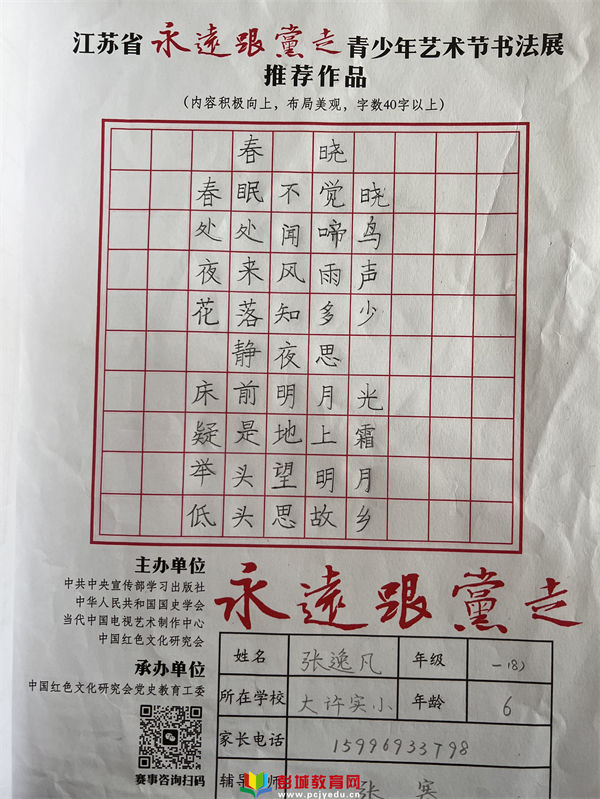 江苏省永遠跟黨走青少年艺术节书法展
推荐作品
（内容积极向上，布局美观，字数40字以上）
春 晓
春眠不觉晓
处处闻啼鸟
夜来风雨声
花落知多少
静夜思
床前明月光
疑是地上霜
举头望明月
低头思故乡
主办单位
中共中央宣传部学习出版社
中华人民共和国国史学会
当代中国电视艺术制作中心
中国红色文化研究会
承办单位
中国红色文化研究会党史教育工委
赛事咨询扫码
永遠跟黨走
姓名 张逸凡 年级 一（8）
所在学校 大许实小 年龄 6
家长电话 15996933798
辅导 师 张
彭城教育网
www.pcjyedu.cn